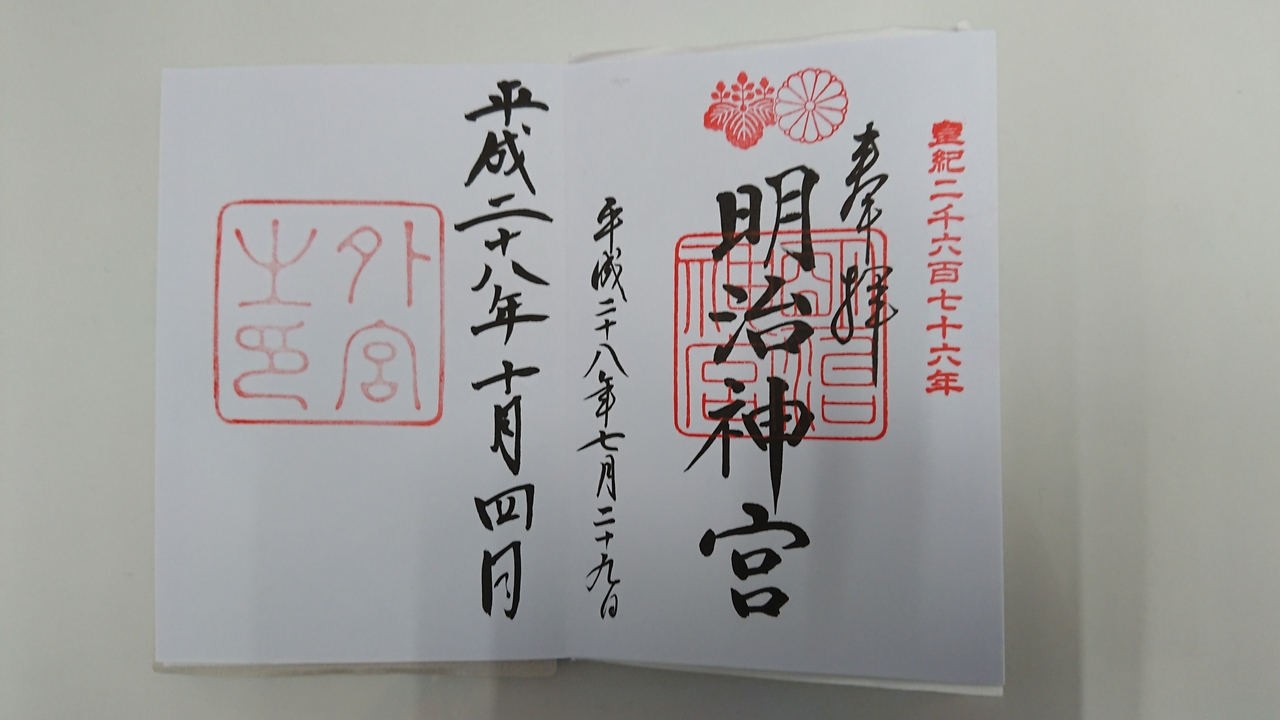 皇紀二千六百七十六年
奉拝
明治神宮
明治神宮
平成二十八年七月二十九日
平成二十八年十月四日
外宮
之印